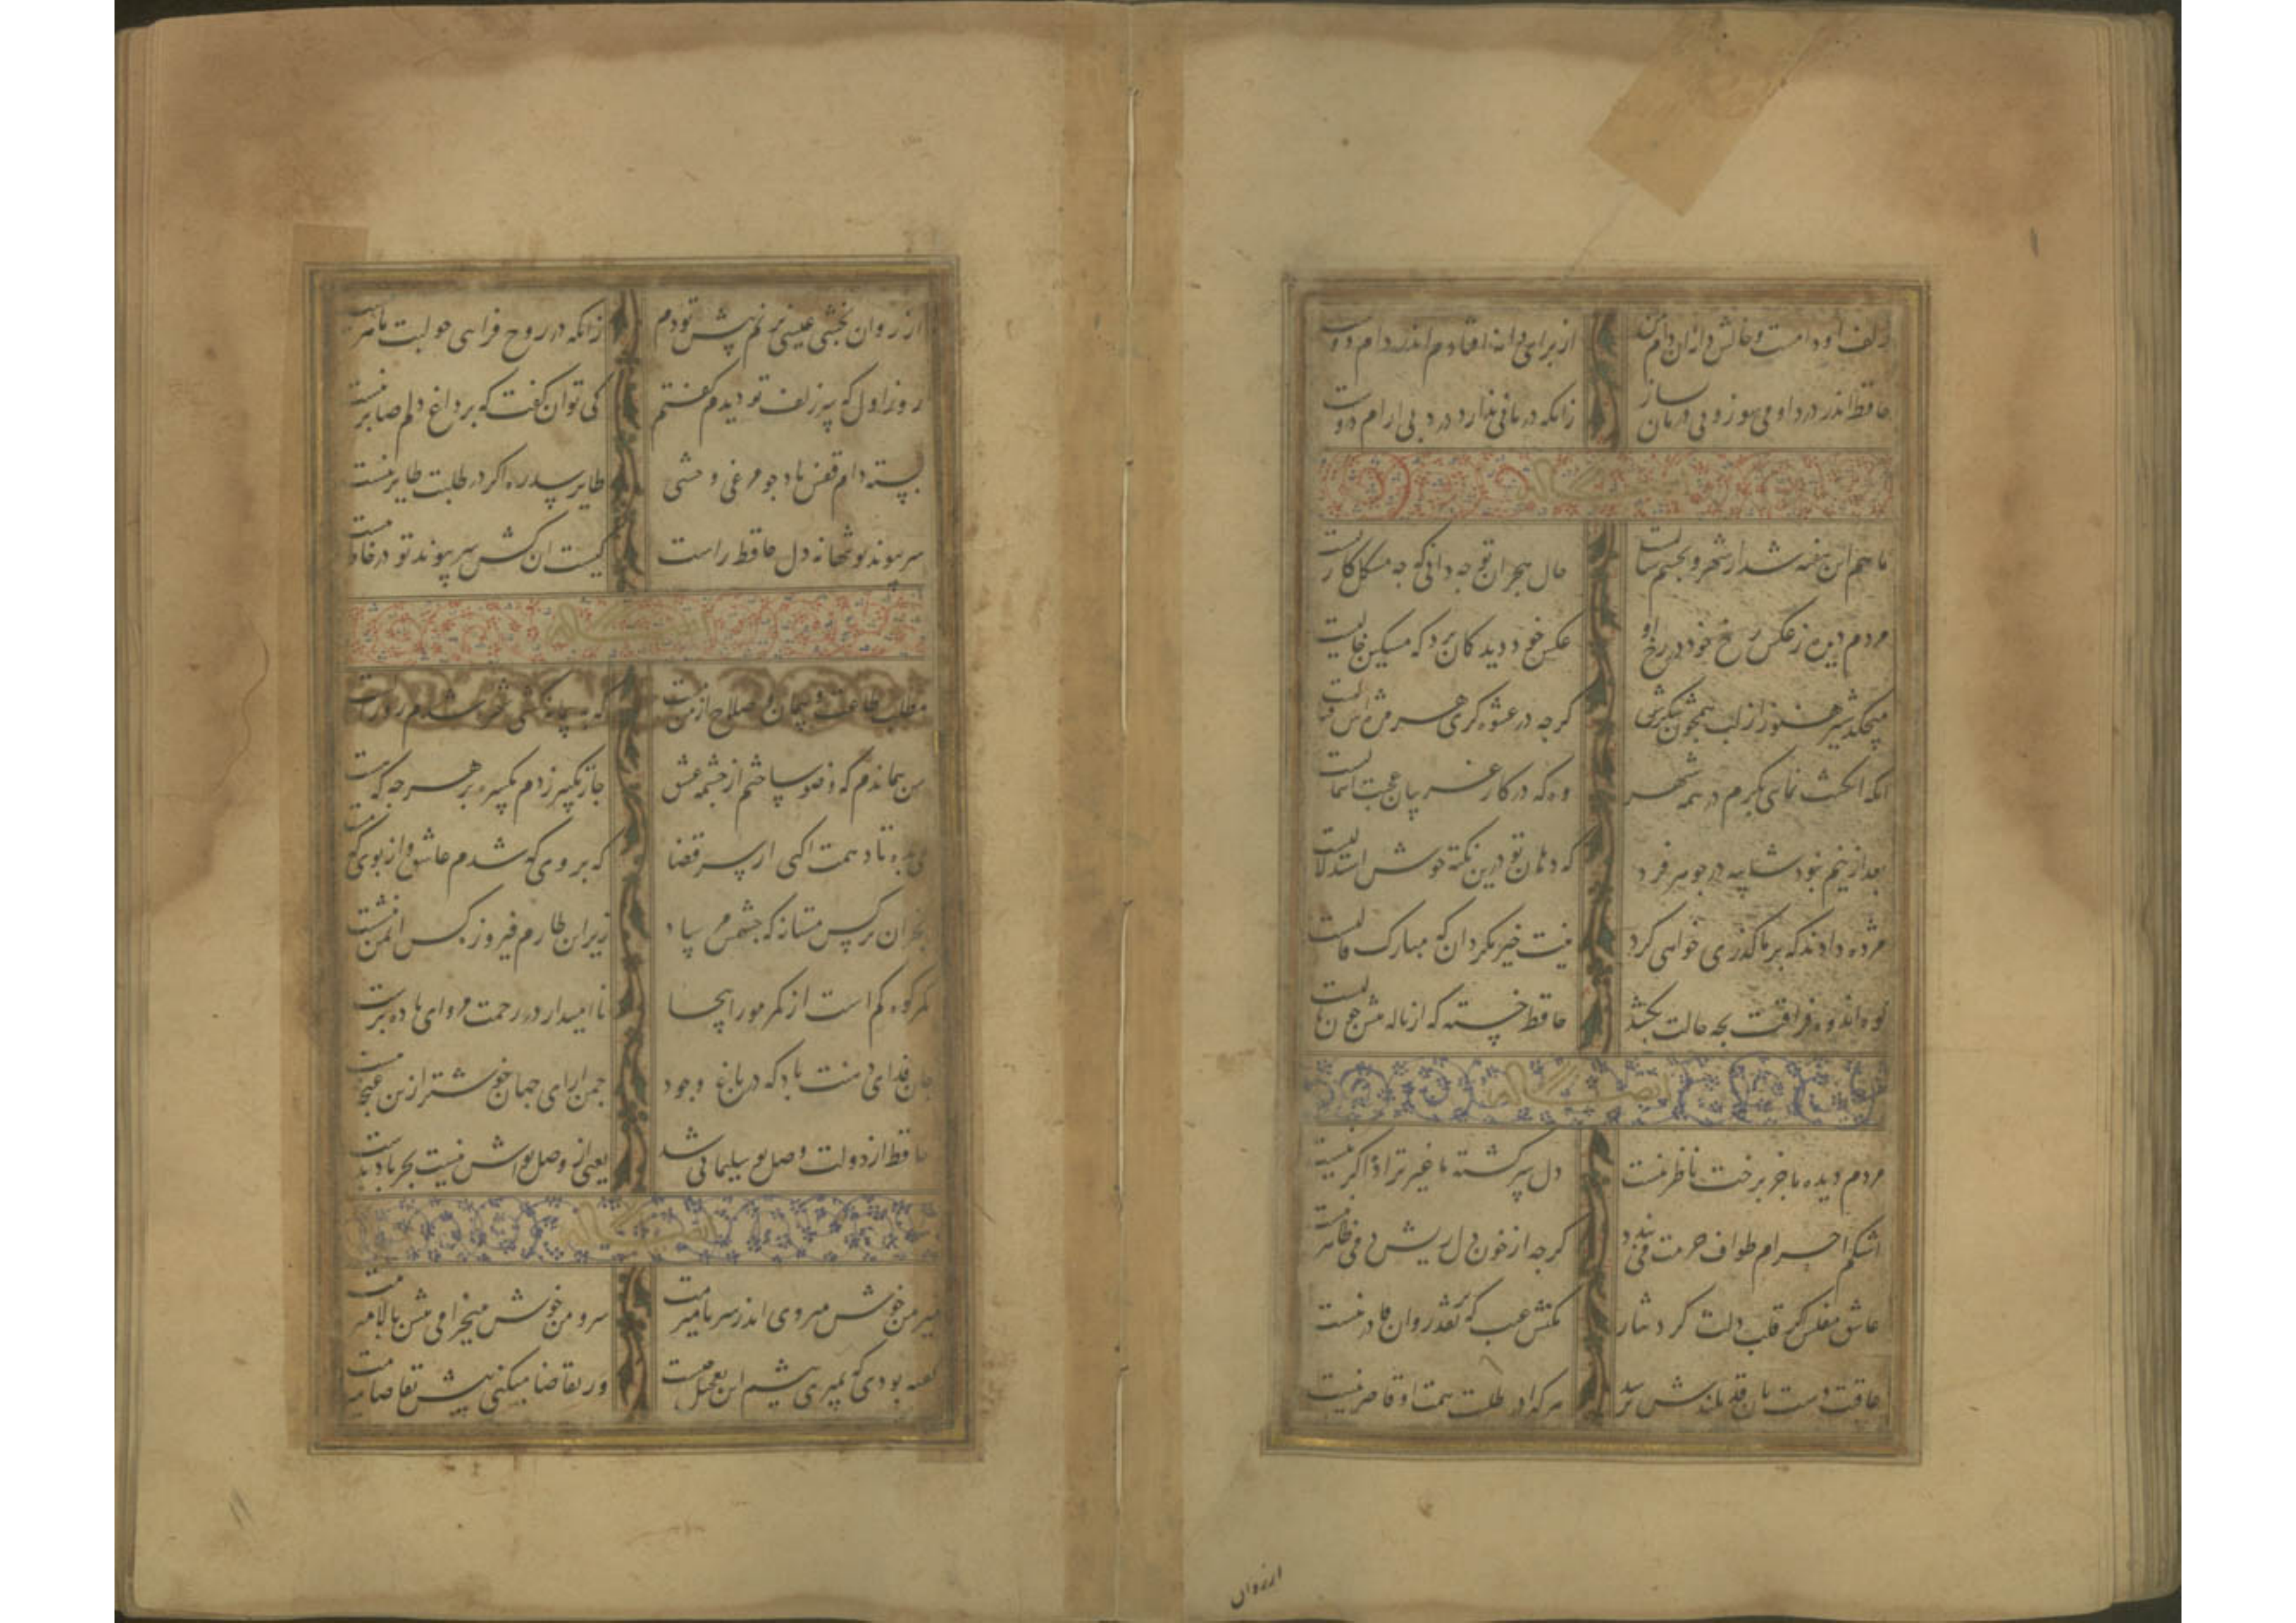 زلف او دامست و خالش دانه ان دام من از برای دانه افتادم اندر دام دوست
حافظ اندر درد او می سوز و بی درمان ساز زانکه درمانی ندارد درد بی ارام دوست
ایضا له
ماهم این هفته شد از شهر و بچشمم سالیست حال هجران تو چه دانی که چه مشکل کاریست
مردم دیده ز عکس رخ خود در رخ او عکس خود دید کمان برد که مسکین خالیست
میچکد شیر هنوز از لب همچون شکرش کرچه در عشوه کری هر مژه اش قتالیست
انکه انکشت نمای بکرم در همه شهر وه که در کار غریبان عجبت اهمالیست
بعد ازینم نبود شایبه در جوهر فرد که دهان تو درین نکته خوش استدلالیست
مژده دادند که بر ما کذری خواهی کرد نیت خیر مکردان که مبارک فالیست
کوه اندوه فراقت بچه حالت بکشد حافظ خسته که از ناله تنش چون نالیست
ایضا له
مردم دیده ما جز برخت ناظر نیست دل سرکشته ما غیر ترا ذاکر نیست
اشکم احرام طواف حرمت می بندد کرچه از خون دل ریش دمی طاهر نیست
عاشق مفلس کر قلب دلت کرد نثار مکنش عیب که بر نقد روان قادر نیست
عاقبت دست بدان قد بلندش برسد هرکه در طلبت همت او قاصر نیست
از روان
از روان بخشی عیسی نزنم پیش تو دم زانکه در روح فزایی چو لبت ماهر نیست
روز اول که سر زلف تو دیدم کفتم کی توان کفت که بر داغ دلم صابر نیست
بسته دام قفس باد چو مرغی وحشی طایر سدره اکر در طلبت طایر نیست
سر پیوند تو تنها نه دل حافظ راست کیست ان کش سر پیوند تو در خاطر نیست
ایضا له
مطلب طاعت و پیمان و صلاح از من مست که به پیمانه کشی شهره شدم روز الست
من هماندم که وضو ساختم از چشمه عشق چار تکبیر زدم یکسره بر هرچه که هست
می بده تا دهمت اکهی از سر قضا که بروی که شدم عاشق و از بوی که مست
بجز ان نرکس مستانه که چشمش مرساد زیر این طارم فیروزه کس خوش ننشست
کمر کوه کم است از کمر مور اینجا ناامید از در رحمت مشو ای باده پرست
جان فدای دهنت باد که در باغ وجود چمن ارای جهان خوشتر ازین غنچه نبست
حافظ از دولت وصل تو سلیمانی شد یعنی از وصل تواش نیست بجز باد بدست
ایضا له
میر من خوش میروی اندر سر پا میرمت سرو من خوش میخرامی پیش بالا میرمت
کفته بودی که بمیری پیشم این تعجیل چیست ور تقاضا میکنی پیش تقاضا میرمت